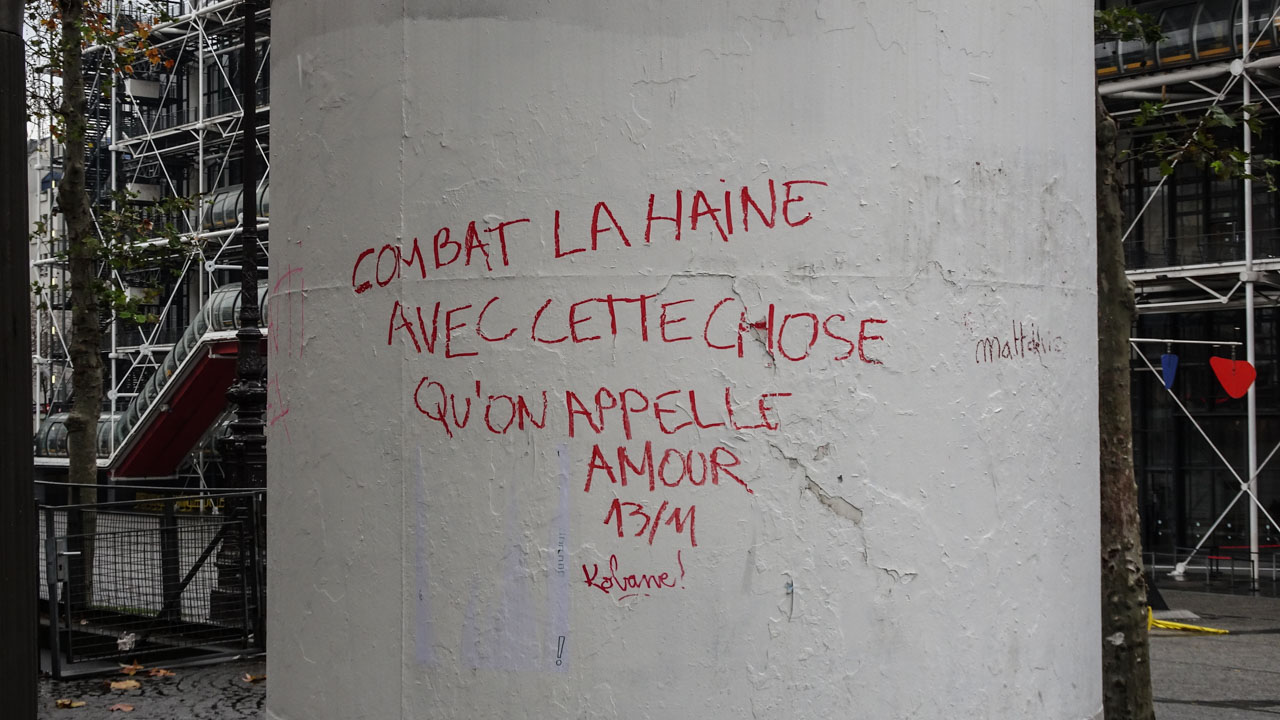 COMBAT LA HAINE
AVEC CETTE CHOSE
QU'ON APPELLE
AMOUR
13/11
Kobane!